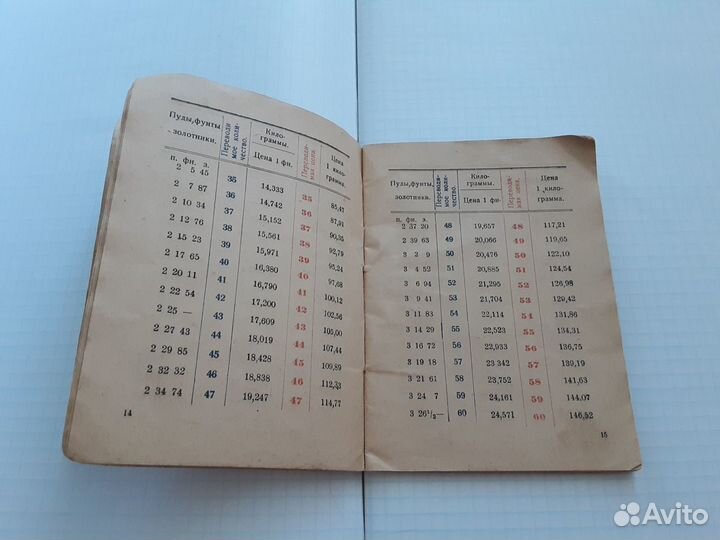 Пуды,фунты
золотники.
Переводи
мое коли-
чество.
Кило-
граммы.
Цена 1 фн.
Переводи-
мая цена.
Цена
1 кило-
грамма.
п. фн. з.
2 5 45 35 14,333 35 85,47
2 7 87 36 14,742 36 87,91
2 10 34 37 15,152 37 90,35
2 12 76 38 15,561 38 92,79
2 15 23 39 15,971 39 95,24
2 17 65 40 16,380 40 97,68
2 20 11 41 16,790 41 100,12
2 22 54 42 17,200 42 102,56
2 25 — 43 17,609 43 105,00
2 27 43 44 18,019 44 107,44
2 29 85 45 18,428 45 109,89
2 32 32 46 18,838 46 112,33
2 34 74 47 19,247 47 114,77
14
Пуды,фунты,
золотники.
Переводи-
мое коли-
чество.
Кило-
граммы.
Цена 1 фн.
Переводи-
мая цена.
Цена
1 кило-
грамма.
п. фн. з.
2 37 20 48 19,657 48 117,21
2 39 63 49 20,066 49 119,65
3 2 9 50 20,476 50 122,10
3 4 52 51 20,885 51 124,54
3 6 94 52 21,295 52 126,98
3 9 41 53 21,704 53 129,42
3 11 83 54 22,114 54 131,86
3 14 29 55 22,523 55 134,31
3 16 72 56 22,933 56 136,75
3 19 18 57 23 342 57 139,19
3 21 61 58 23,752 58 141,63
3 24 7 59 24,161 59 144,07
3 26½— 60 24,571 60 146,52
15
Avito